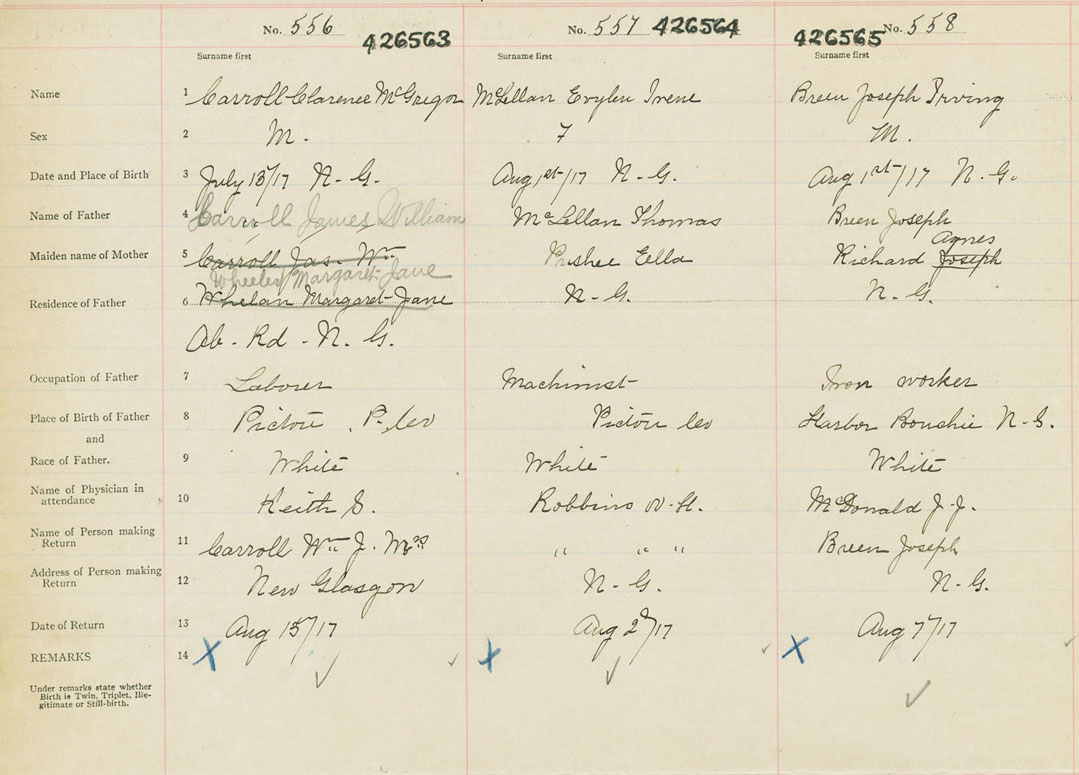 No. 556 426563 No. 557 426564 426565 No. 558
Surname first Surname first Surname first
Name 1 Carroll Clarence McGregor McLellan Evylen Irene Breen Joseph Irving
Sex 2 M. F M.
Date and Place of Birth 3 July 13/17 N-G. Aug 1st/17 N-G. Aug 1st/17 N-G.
Name of Father 4 Carroll James William McLellan Thomas Breen Joseph
Agnes
Maiden name of Mother 5 Carroll Jas. Wm Ella Richard Joseph
Wheeler Margaret Jane
Residence of Father 6 Whelan Margaret Jane N-G. N-G.
Ab. Rd - N. G.
Occupation of Father 7 Laborer Machinist Iron worker
Place of Birth of Father 8 Pictou, P. Co Pictou Co Harbor Bouchie N-S.
and
Race of Father. 9 White White White
Name of Physician in
attendance 10 Keith S. Robbins W. H. McDonald J. J.
Name of Person making
Return 11 Carroll Wm J. Mrs " " " Breen Joseph
Address of Person making
Return 12 New Glasgow N-G. N-G.
Date of Return 13 Aug 15/17 Aug 2/17 Aug 7/17
REMARKS 14 X X X
Under remarks state whether
Birth is Twin, Triplet, Ille-
gitimate or Still-birth.